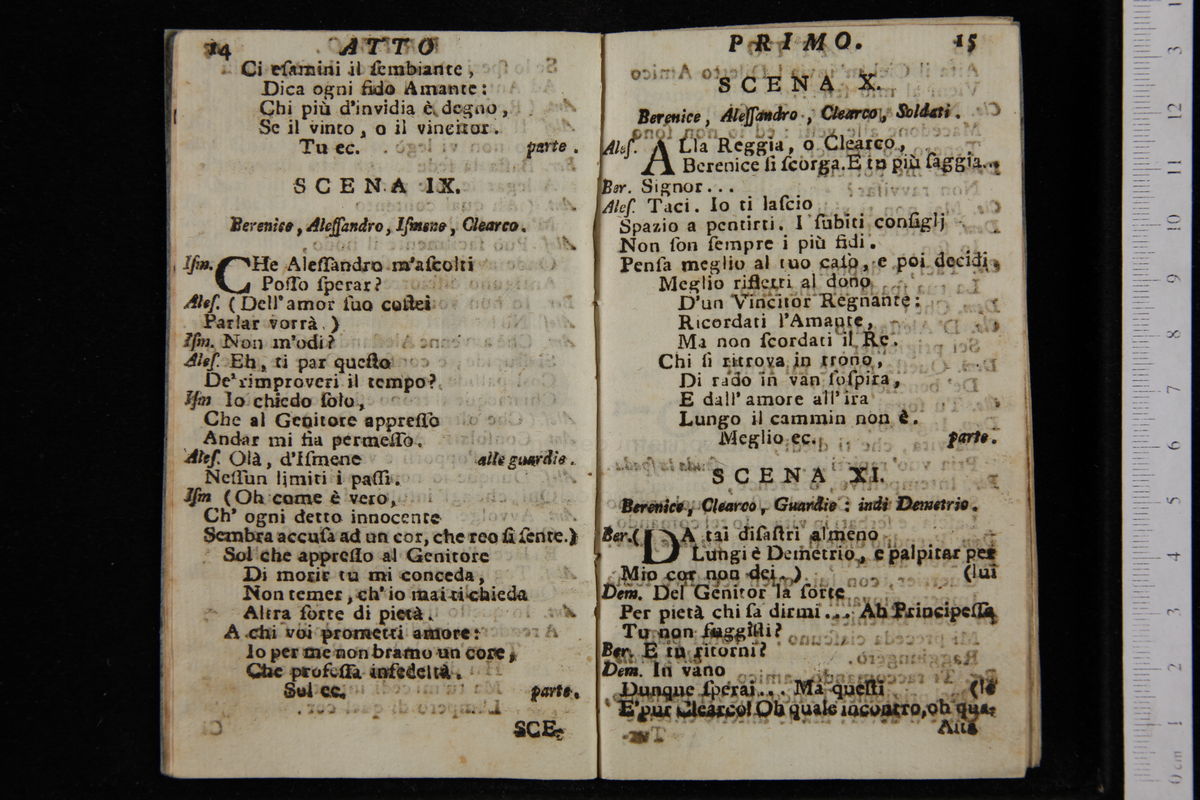 14 ATTO
Ci eſamini il ſembiante,
Dica ogni fido Amante:
Chi più d'invidia è degno,
Se il vinto, o il vincitor.
Tu ec. parte.
SCENA IX.
Berenice, Aleſſandro, Iſmene, Clearco.
Iſm. CHe Aleſſandro m'aſcolti
Poſſo ſperar?
Aleſ. (Dell'amor ſuo coſtei
Parlar vorrà.)
Iſm. Non m'odi?
Aleſ. Eh, ti par queſto
De' rimproveri il tempo?
Iſm Io chiedo ſolo,
Che al Genitore appreſſo
Andar mi ſia permeſſo.
Aleſ. Olà, d'Iſmene alle guardie.
Neſſun limiti i paſſi.
Iſm (Oh come è vero,
Ch' ogni detto innocente
Sembra accuſa ad un cor, che reo ſi ſente.)
Sol che appreſſo al Genitore
Di morir tu mi conceda,
Non temer, ch'io mai ti chieda
Altra ſorte di pietà.
A chi voi prometti amore:
Io per me non bramo un core,
Che profeſſa infedeltà.
Sol ec. parte.
SCE-
PRIMO. 15
SCENA X.
Berenice, Aleſſandro, Clearco, Soldati.
Aleſ. ALla Reggia, o Clearco,
Berenice ſi ſcorga. E tu più ſaggia..
Ber. Signor...
Aleſ. Taci. Io ti laſcio
Spazio a pentirti. I ſubiti conſiglj
Non ſon ſempre i più fidi.
Penſa meglio al tuo caſo, e poi decidi.
Meglio rifletti al dono
D'un Vincitor Regnante:
Ricordati l'Amante,
Ma non ſcordati il Re.
Chi ſi ritrova in trono,
Di rado in van ſoſpira,
E dall' amore all' ira
Lungo il cammin non è.
Meglio ec. parte.
SCENA XI.
Berenice, Clearco, Guardie: indi Demetrio.
Ber. (DA tai diſaſtri almeno
Lungi è Demetrio, e palpitar per
Mio cor non dei.) (lui
Dem. Del Genitor la ſorte
Per pietà chi ſa dirmi... Ah Principeſſa
Tu non fuggiſti?
Ber. E tu ritorni?
Dem. In vano
Dunque ſperai... Ma queſti (le
E' pur Clearco! Oh quale incontro, oh qua-
Aita